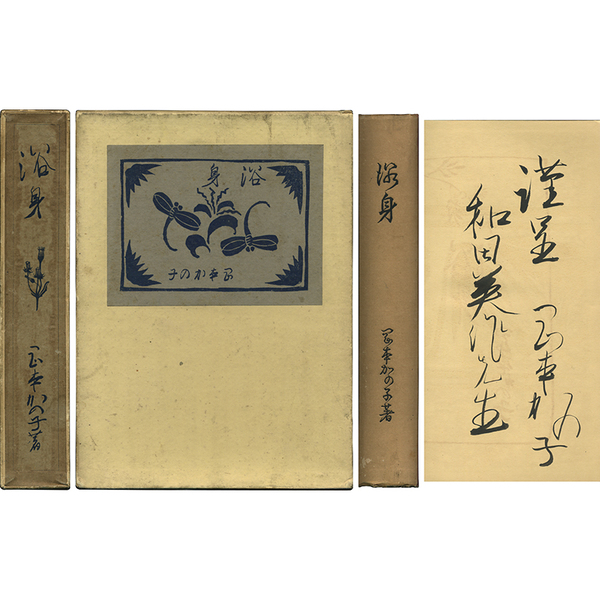 浴身
岡本かの子著
浴身
岡本かの子
浴身
岡本かの子著
謹呈
岡本かの子
和田英作先生